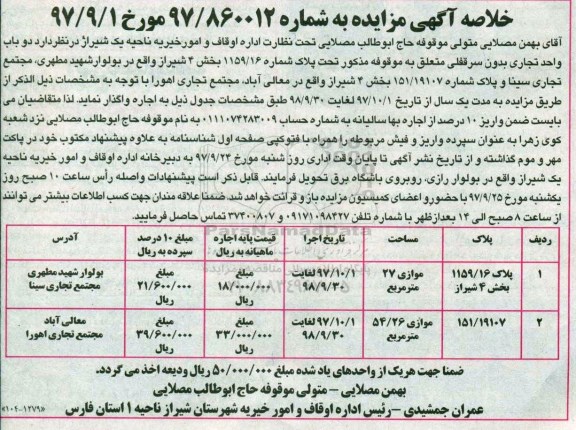 خلاصه آگهی مزایده به شماره ۹۷/۸۶۰۰۱۲ مورخ ۹۷/۹/۱
آقای بهمن مصلایی متولی موقوفه حاج ابوطالب مصلایی تحت نظارت اداره اوقاف و امور خیریه ناحیه یک شیراز در نظر دارد دو باب
واحد تجاری بدون سرقفلی متعلق به موقوفه مذکور تحت پلاک شماره ۱۱۵۹/۱۶ بخش ۴ شیراز واقع در بولوار شهید مطهری، مجتمع
تجاری سینا و پلاک شماره ۱۵۱/۱۹۱۰۷ بخش ۴ شیراز واقع در معالی آباد، مجتمع تجاری اهورا با توجه به مشخصات ذیل الذکر از
طریق مزایده به مدت یک سال از تاریخ ۹۷/۱۰/۱ لغایت ۹۸/۹/۳۰ طبق مشخصات جدول ذیل به اجاره واگذار نماید. لذا متقاضیان می
بایست ضمن واریز ۱۰ درصد از اجاره بها سالیانه به شماره حساب ۰۱۱۱۰۷۴۲۸۳۰۰۹ به نام موقوفه حاج ابوطالب مصلایی نزد شعبه
کوی زهرا به عنوان سپرده واریز و فیش مربوطه را همراه با فتوکپی صفحه اول شناسنامه به علاوه پیشنهاد مکتوب خود در پاکت
مهر و موم گذاشته و از تاریخ نشر آگهی تا پایان وقت اداری روز شنبه مورخ ۹۷/۹/۲۴ به دبیرخانه اداره اوقاف و امور خیریه ناحیه
یک شیراز واقع در بولوار رازی، روبروی باشگاه برق تحویل فرمایند. قابل ذکر است پیشنهادات واصله رأس ساعت ۱۰ صبح روز
یکشنبه مورخ ۹۷/۹/۲۵ با حضور و اعضای کمیسیون مزایده باز و قرائت خواهد شد. ضمنا علاقه مندان جهت کسب اطلاعات بیشتر می توانند
از ساعت ۸ صبح الی ۱۴ بعدازظهر با شماره تلفن ۰۹۱۷۱۰۹۸۴۲۷ و ۳۷۳۰۰۸۰۷ تماس حاصل فرمایید.
ParsNamadData
ردیف پلاک مساحت تاریخ اجرا قیمت پایه اجاره ماهیانه به ریال مبلغ ۱۰ درصد سپرده به ریال آدرس
۱ پلاک ۱۱۵۹/۱۶ بخش ۴ شیراز موازی ۲۷ مترمربع ۹۷/۱۰/۱ لغایت ۹۸/۹/۳۰ مبلغ ۱۸/۰۰۰/۰۰۰ ریال مبلغ ۲۱/۶۰۰/۰۰۰ ریال بولوار شهید مطهری مجتمع تجاری سینا
۲ ۱۵۱/۱۹۱۰۷ موازی ۵۴/۲۶ مترمربع ۹۷/۱۰/۱ لغایت ۹۸/۹/۳۰ مبلغ ۳۳/۰۰۰/۰۰۰ ریال مبلغ ۳۹/۶۰۰/۰۰۰ ریال معالی آباد مجتمع تجاری اهورا
ضمنا جهت هریک از واحدهای یاد شده مبلغ ۵۰/۰۰۰/۰۰۰ ریال ودیعه اخذ می گردد.
بهمن مصلایی – متولی موقوفه حاج ابوطالب مصلایی
عمران جمشیدی – رئیس اداره اوقاف و امور خیریه شهرستان شیراز ناحیه ۱ استان فارس
«۱۰۴-۱۲۷۹»